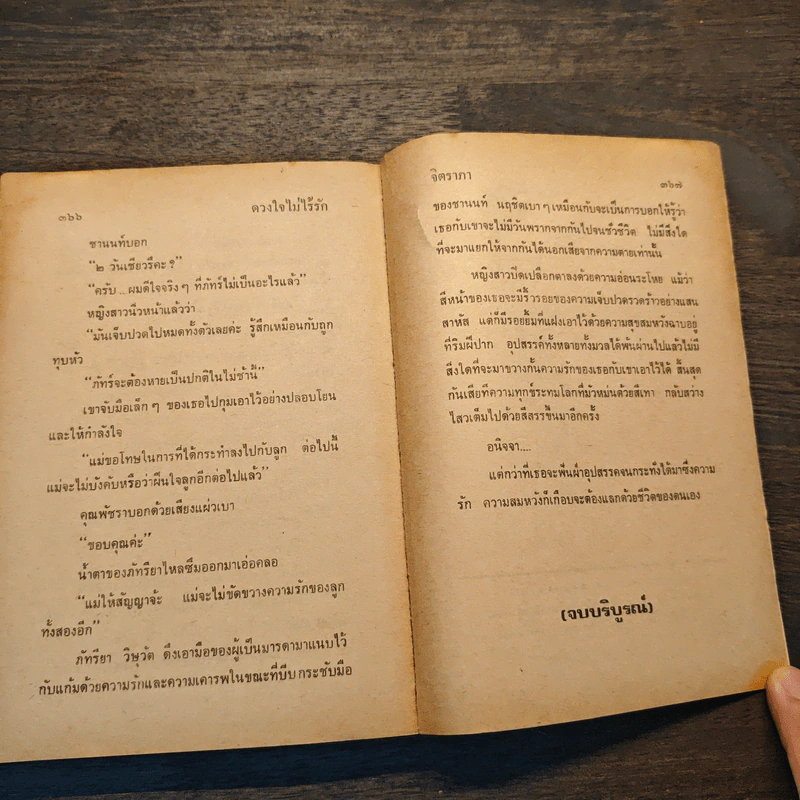 ๓๖๖
ดวงใจไม่ไร้รัก
ชานนท์บอก
“๒ วันเชียวรึคะ ?”
“ครับ ... ผมดีใจจริง ๆ ที่ภัทร์ไม่เป็นอะไรแล้ว”
หญิงสาวนิ่วหน้าแล้วว่า
“มันเจ็บปวดไปหมดทั้งตัวเลยค่ะ รู้สึกเหมือนกับถูก
ทุบหัว
“ภัทร์จะต้องหายเป็นปกติในไม่ช้านี้”
เขาจับมือเล็ก ๆ ของเธอไปกุมเอาไว้อย่างปลอบโยน
และให้กำลังใจ
“แม่ขอโทษในการที่ได้กระทำลงไปกับลูก ต่อไปนี้
แม่จะไม่บังคับหรือว่าฝืนใจลูกอีกต่อไปแล้ว”
คุณพัชราบอกด้วยเสียงแผ่วเบา
“ขอบคุณค่ะ”
น้ำตาของภัทรียาไหลซึมออกมาเอ่อคลอ
“แม่ให้สัญญาจ้ะ แม่จะไม่ขัดขวางความรักของลูก
ทั้งสองอีก”
ภัทรียา วิษุวัต ดึงเอามือของผู้เป็นมารดามาแนบไว้
กับแก้มด้วยความรักและความเคารพในขณะที่บีบกระชับมือ
จิตราภา
๓๖๗
ของชานนท์ นฤชิตเบา ๆ เหมือนกับจะเป็นการบอกให้รู้ว่า
เธอกับเขาจะไม่มีวันพรากจากกันไปจนชั่วชีวิต ไม่มีสิ่งใด
ที่จะมาแยกให้จากกันได้นอกเสียจากความตายเท่านั้น
หญิงสาวปิดเปลือกตาลงด้วยความอ่อนระโหย แม้ว่า
สีหน้าของเธอจะมีริ้วรอยของความเจ็บปวดรวดร้าวอย่างแสน
สาหัส แต่ก็มีรอยยิ้มที่แฝงเอาไว้ด้วยความสุขสมหวังฉาบอยู่
ที่ริมฝีปาก อุปสรรค์ทั้งหลายทั้งมวลได้พ้นผ่านไปแล้วไม่มี
สิ่งใดที่จะมาขวางกั้นความรักของเธอกับเขาเอาไว้ได้ สิ้นสุด
กันเสียทีความทุกข์ระทมโลกที่มัวหม่นด้วยสีเทา กลับสว่าง
ไสวเต็มไปด้วยสีสรรขึ้นมาอีกครั้ง
อนิจจา....
แต่กว่าที่เธอจะฟันฝ่าอุปสรรคจนกระทั่งได้มาซึ่งความ
รัก ความสมหวังก็เกือบจะต้องแลกด้วยชีวิตของตนเอง
(จบบริบูรณ์)